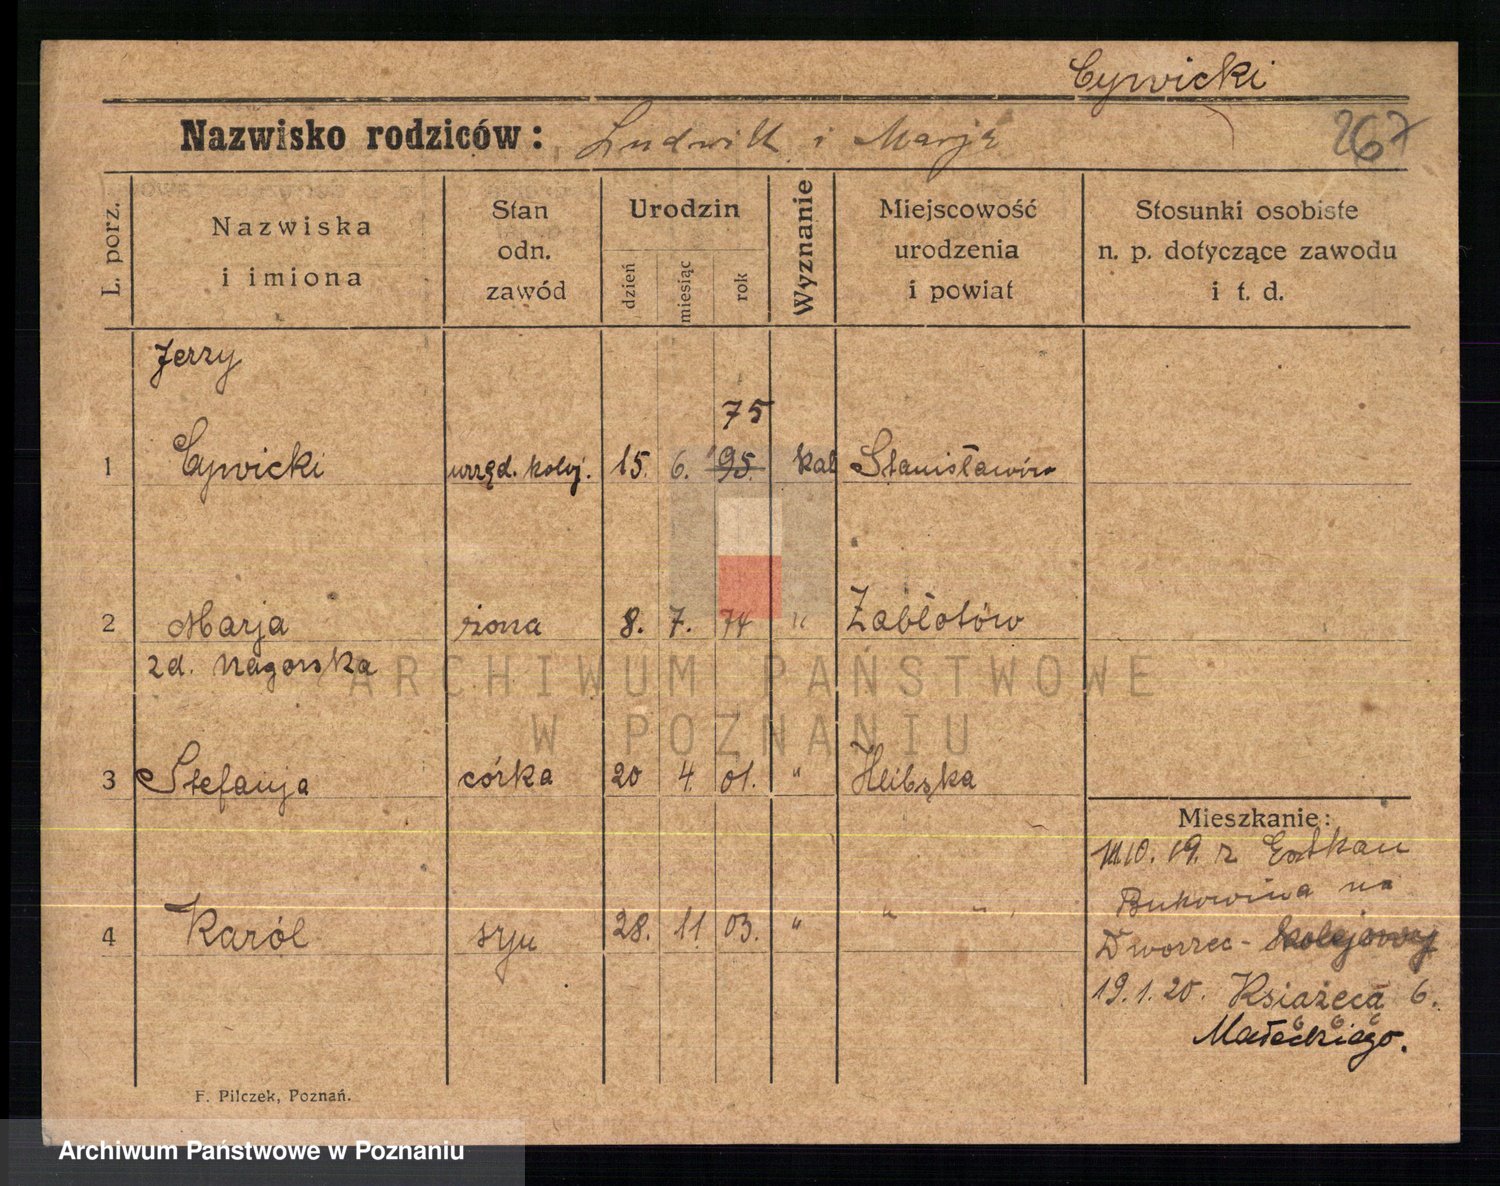 Cywicki
Nazwisko rodziców: Ludwik i Marja
267
L. porz.
Nazwiska i imiona
Stan odn. zawód
Urodzin
dzień
miesiąc
rok
Wyznanie
Miejscowość urodzenia i powiat
Stosunki osobiste n. p. dotyczące zawodu i t. d.
Jerzy
75
1 Cywicki urzęd. kolej. 15. 6. 95. kat Stanisławów
2 Marja żona 8. 7. 74 " Zabłotów
zd. Nagorska
ARCHIWUM PAŃSTWOWE
W POZNANIU
3 Stefanja córka 20 4. 01. " Hlibska
Mieszkanie:
10. 19. z
Bukowina na
4 Karól syn 28. 11. 03. " " "
Dworzec - kolejowy
19.1.20. Książęca 6.
Małeckiego.
F. Pilczek, Poznań.
Archiwum Państwowe w Poznaniu